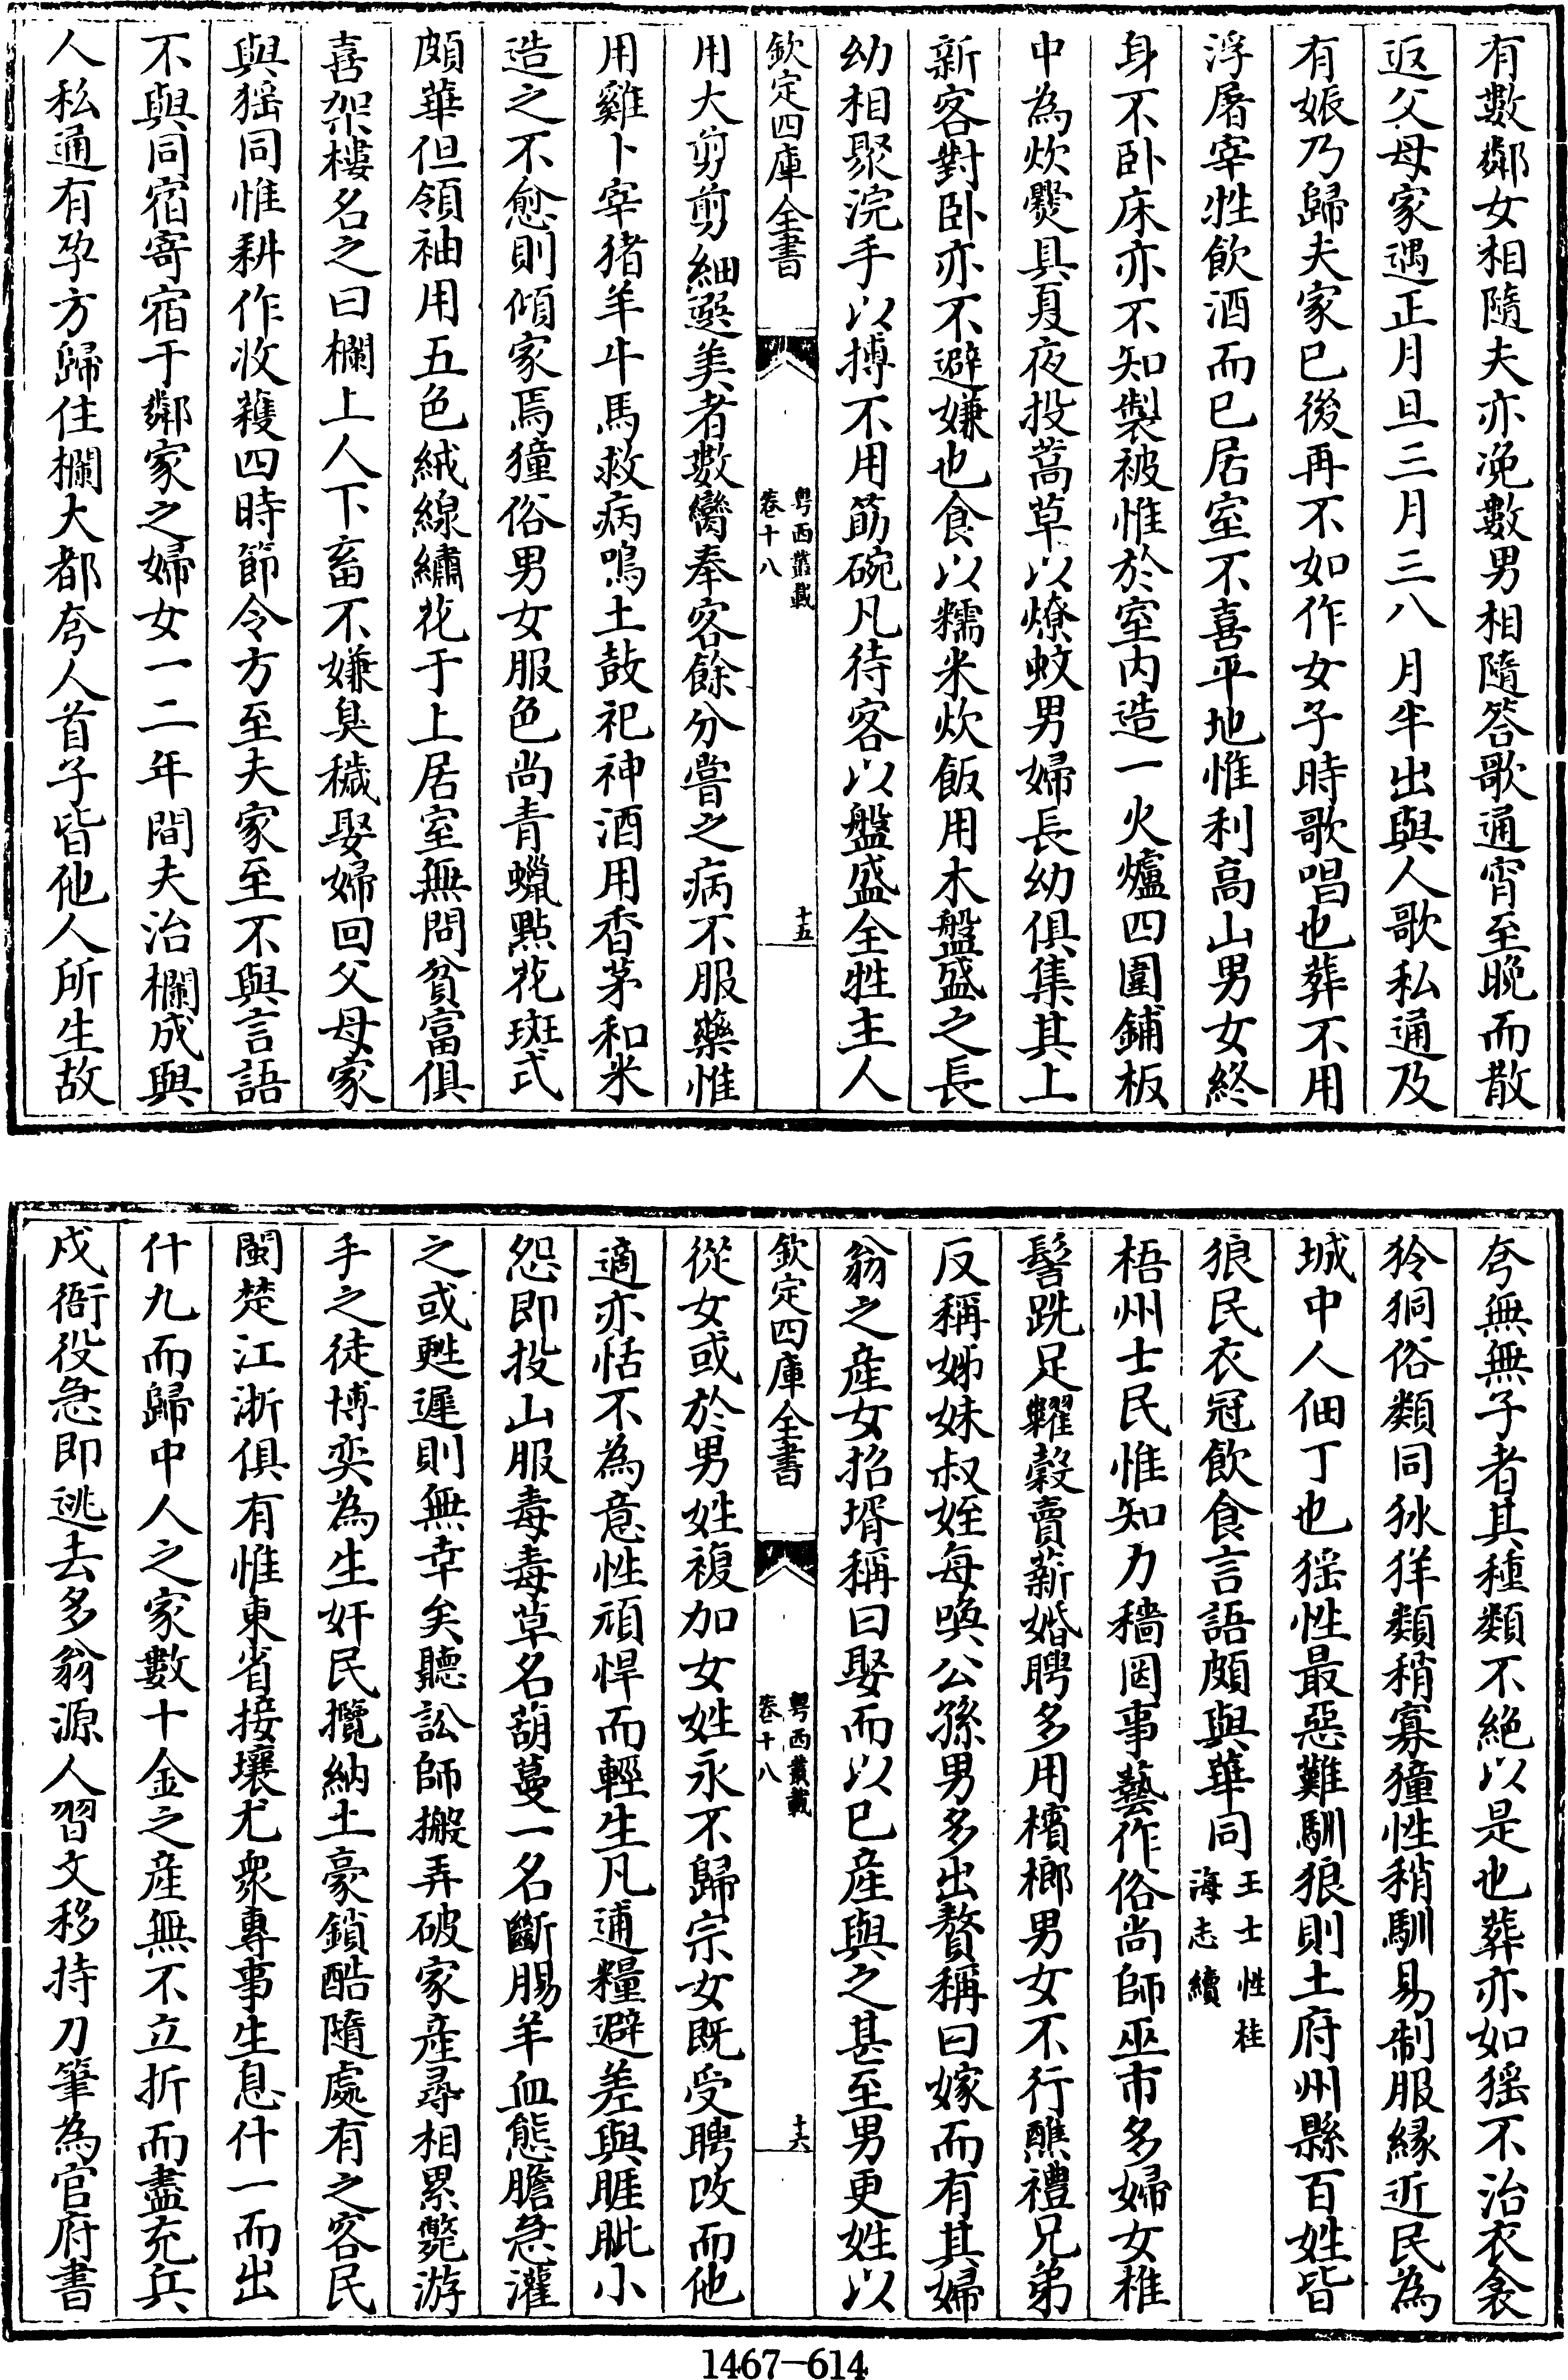 有數鄰女相隨夫亦凂數男相隨答歌通宵至晚而散
返父母家遇正月旦三月三八月半出與人歌私通及
有娠乃歸夫家已後再不如作女子時歌唱也葬不用
浮屠宰牲飲酒而已居室不喜平地惟利高山男女終
身不卧床亦不知製被惟於室内造一火爐四圍鋪板
中為炊爨具夏夜投蒿草以燎蚊男婦長幼俱集其上
新客對卧亦不避嫌也食以糯米炊飯用木盤盛之長
幼相聚浣手以摶不用筯碗凡待客以盤盛全牲主人
欽定四庫全書
粤西叢載
卷十八
十五
用大剪剪細選美者數臠奉客餘分嘗之病不服藥惟
用雞卜宰猪羊牛馬救病鳴土鼓祀神酒用香茅和米
造之不愈則傾家焉獞俗男女服色尚青蠟點花斑式
頗華但領袖用五色絨線繡花于上居室無問貧富俱
喜架樓名之曰欄上人下畜不嫌臭穢娶婦回父母家
與猺同惟耕作收穫四時節令方至夫家至不與言語
不與同宿寄宿于鄰家之婦女一二年間夫治欄成與
人私通有孕方歸住欄大都夸人首子皆他人所生故
夸無無子者其種類不絶以是也葬亦如猺不治衣衾
狑狪俗類同狇獞類稍寡獞性稍馴易制服緣近民為
城中人佃丁也猺性最惡難馴狼則土府州縣百姓皆
狼民衣冠飲食言語頗與華同
王士性桂
海志續
梧州士民惟知力穡罔事藝作俗尚師巫市多婦女椎
髻跣足糶穀賣薪婚聘多用檳榔男女不行醮禮兄弟
反稱姊妹叔姪每喚公孫男多出贅稱曰嫁而有其婦
翁之産女招壻稱曰娶而以已産與之甚至男更姓以
欽定四庫全書
粤西叢載
卷十八
十六
從女或於男姓複加女姓永不歸宗女既受聘改而他
適亦恬不為意性頑悍而輕生凡逋糧避差與睚眦小
怨即投山服毒毒草名葫蔓一名斷腸羊血熊膽急灌
之或甦遲則無幸矣聽訟師搬弄破家産尋相累斃游
手之徒博奕為生奸民攬納土豪鎖酷隨處有之客民
閩楚江浙俱有惟東省接壤尤衆專事生息什一而出
什九而歸中人之家數十金之産無不立折而盡充兵
戍衙役急即逃去多翁源人習文移持刀筆為官府書
1467-614